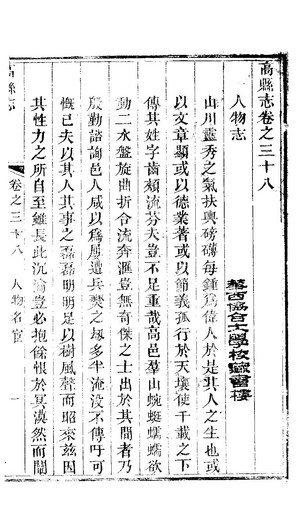 高縣志卷之三十八
人物志
華西協合大學校藏書樓
山川靈秀之氣扶輿磅礴每鍾爲偉人於是其人之生也或
以文章顯或以德業著或以節義孤行於天壤使千載之下
傳其姓字齒頰流芬夫豈不重哉高邑羣山蜿蜒蠕蠕欲
動二水盤旋曲折合流奔滙豈無奇傑之士出於其間者乃
殷勤諮詢邑人咸以爲屢遭兵燹之刼多半淹没不傳吁可
慨已夫以其人其事之磊磊明明足以樹風聲而昭來茲因
其牲力之所自至雖長此沉淪豈必抱餘恨於冥漠然而闡
高縣志
卷之三十八
人物名宦
一